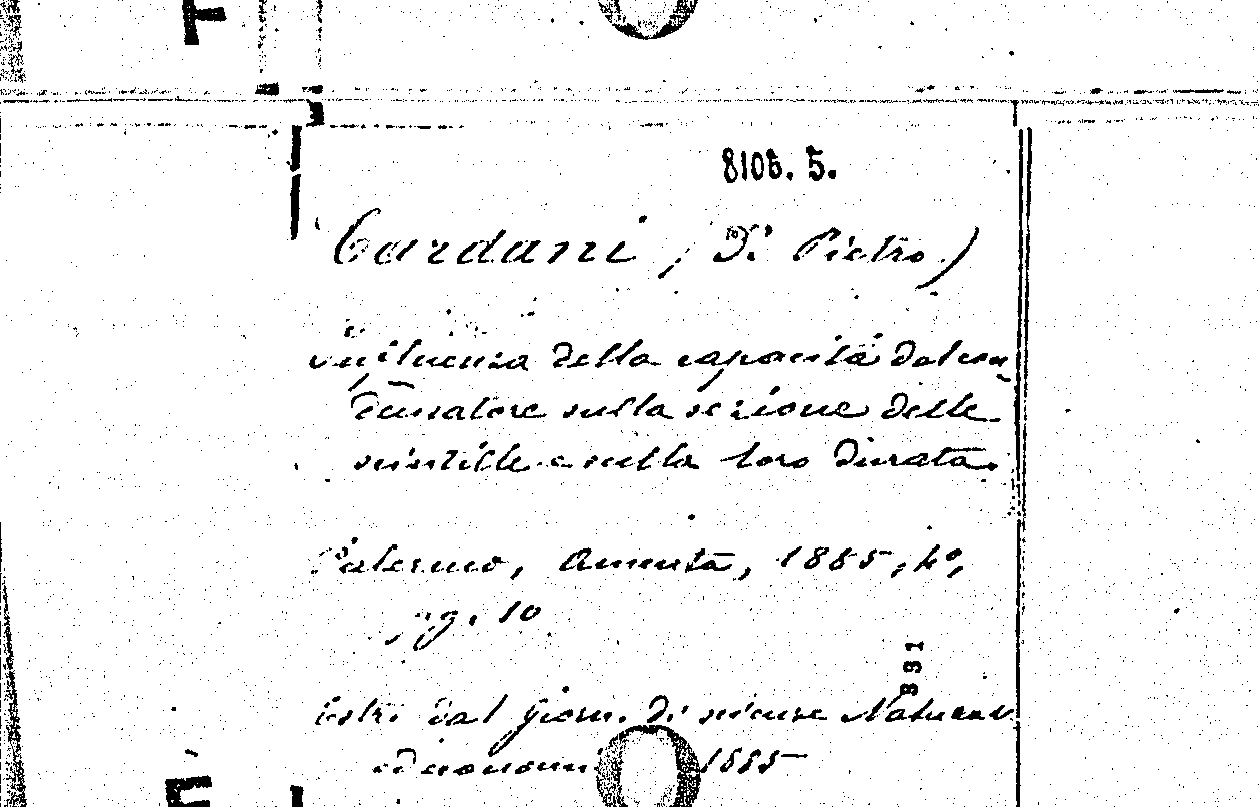 8105. 5.
Cardani, (Di Pietro)
Influenza della capacità del con-
densatore sulla sezione delle
scintille e sulla loro durata.
Palermo, Amenta, 1885, 4º,
pg. 10
331
Estr. dal Giorn. di scienze Natural
ed economi 1885